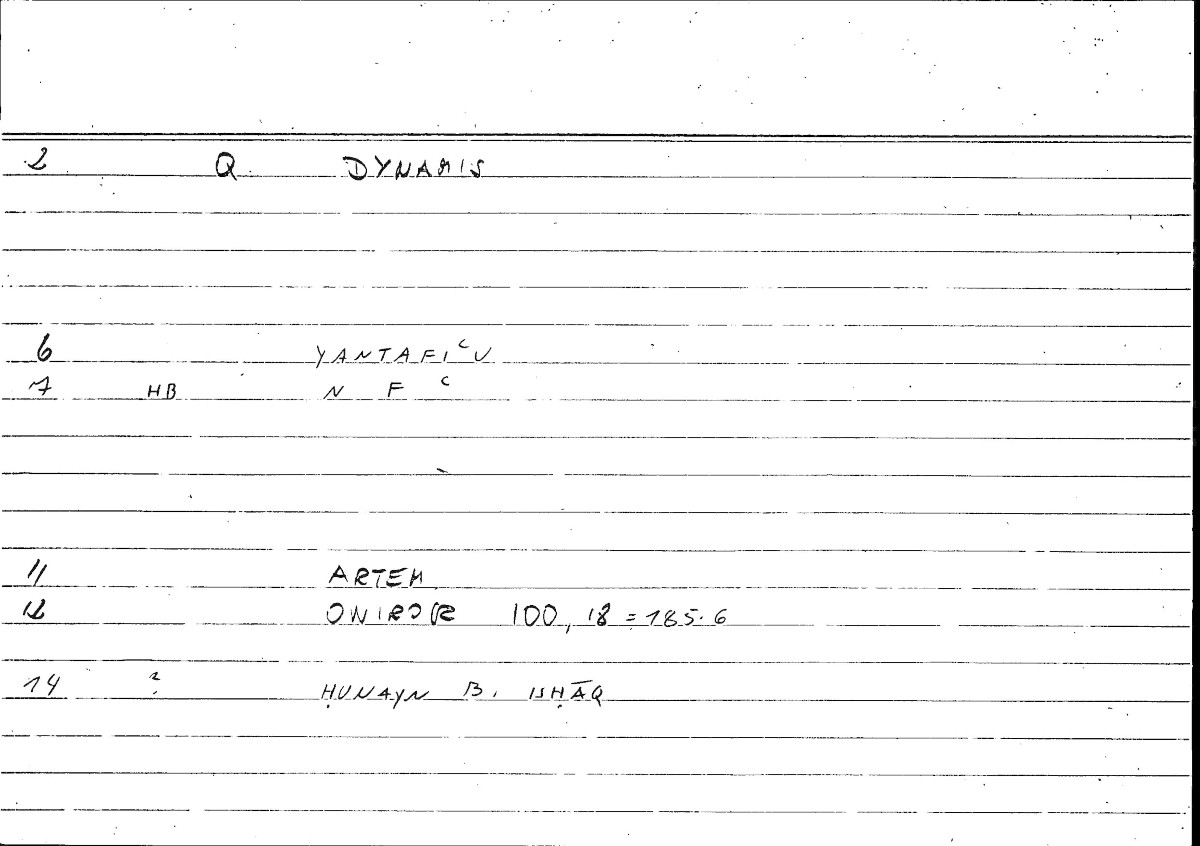 2 Q DYNAMIS
6 YANTAFIᶜU
7 HB N F ᶜ
11 ARTEM
12 ONIROCR 100, 18 = 185.6
14 ? ḤUNAYN B. ISḤĀQ